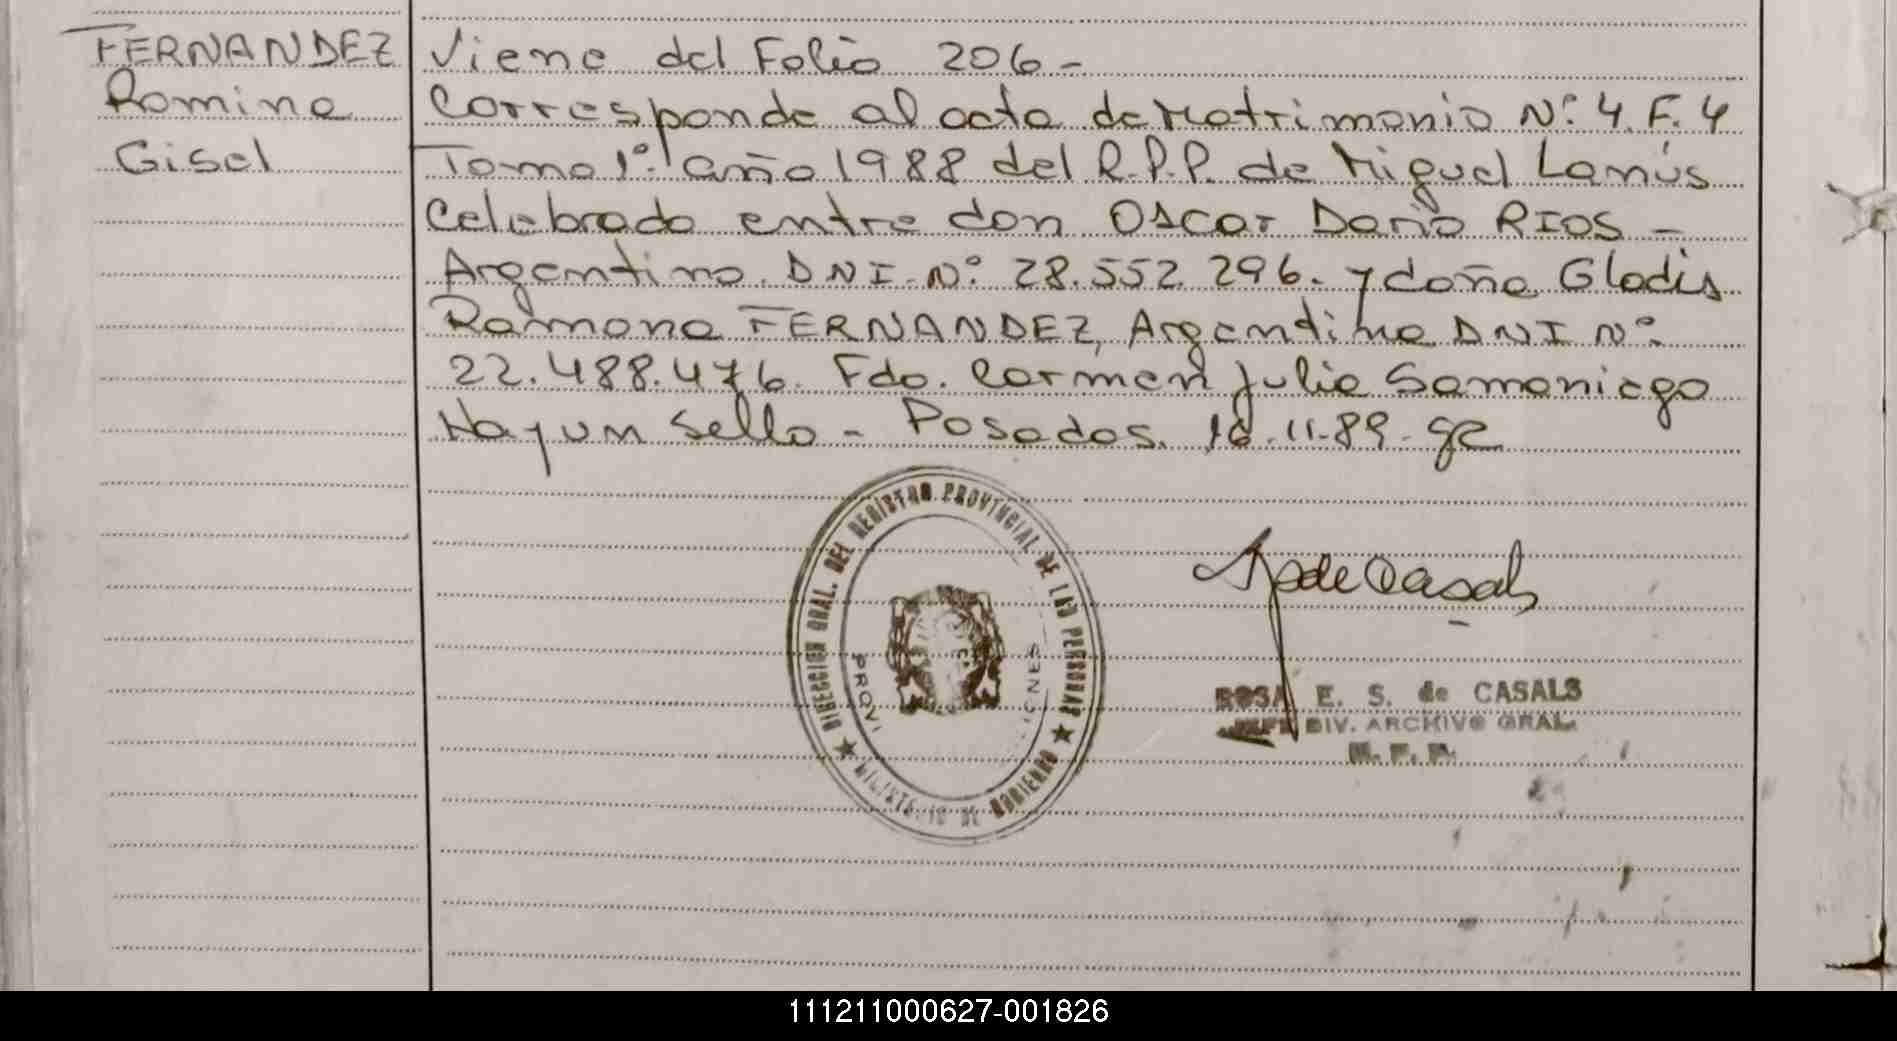 FERNANDEZ
Romina
Gisel
Viene del Folio 206-
Corresponde al acta de Matrimonio N°. 4. F. 4
Tomo 1°. año 1988 del R.P.P. de Miguel Lanús
Celebrado entre don OSCAR Dario RIOS -.
Argentino. DNI. N°. 28.552.296. y doña Gladis
Ramona FERNANDEZ, Argentina DNI N°.
22.488.476. Fdo. Carmen Julia Samaniego
Hay un Sello - Posadas. 16.11.89.
DIRECCION GRAL. DEL REGISTRO PROVINCIAL DE LAS PERSONAS
MINISTERIO DE GOBIERNO
de Casals
ROSA E. S. de CASALS
JEFE DIV. ARCHIVO GRAL.
111211000627-001826